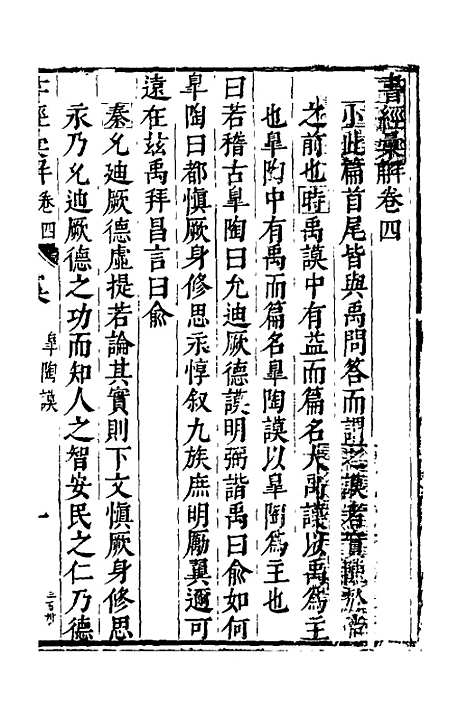 書經彙解卷四
小此篇首尾皆與禹問答而謂之謨者
之前也時禹謨中有益而篇名大禹謨以禹爲主
也皐陶中有禹而篇名皐陶謨以皐陶爲主也
曰若稽古皐陶曰允迪厥德謨明弼諧禹曰俞如何
皐陶曰都愼厥身修思永惇叙九族庶明勵翼邇可
遠在玆禹拜昌言曰俞
秦允迪厥德虛提若論其實則下文愼厥身修思
永乃允迪厥德之功而知人之智安民之仁乃德
卷四
皐陶謨
一